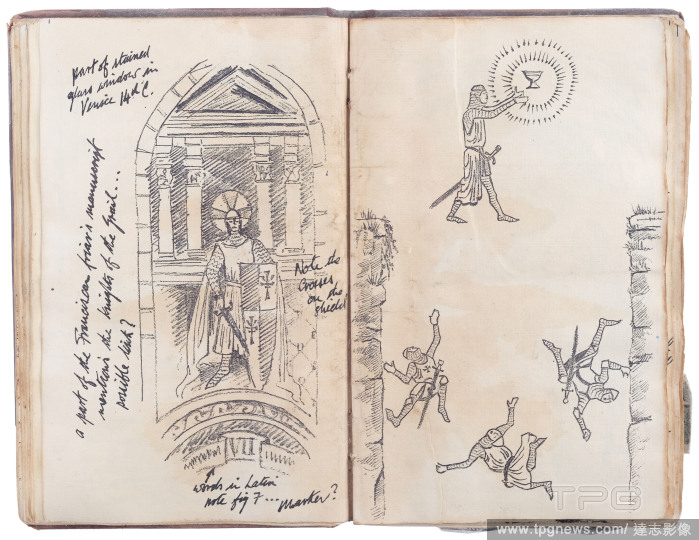 part of stained
glass window in
Venice 14th C.
a part of the Franciscan friar's manuscript
mentions the knights of the grail...
possible link?
Note the
Crosses
on the
shield
VII
words in Latin
note fig 7... marker?
1
TPG
www.tpgnews.com/ 達志影像